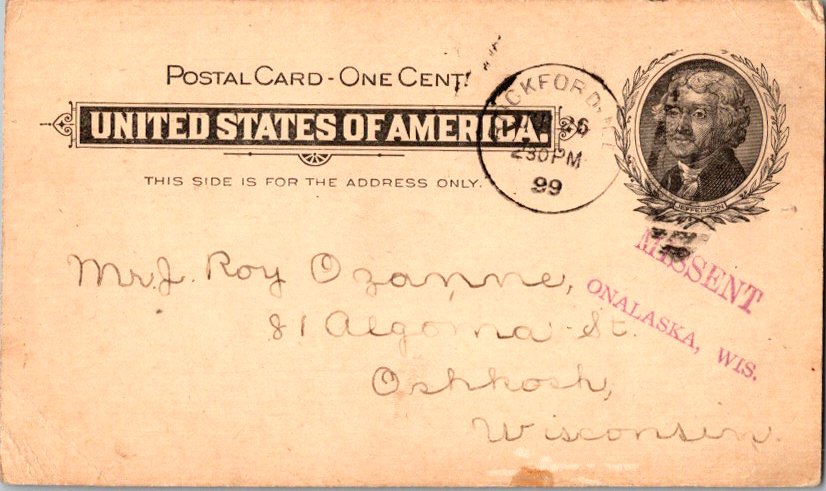 POSTAL CARD - ONE CENT.
UNITED STATES OF AMERICA.
THIS SIDE IS FOR THE ADDRESS ONLY.
CKFORD, ILL
26
230 PM
99
JEFFERSON
MISSENT
ONALASKA, WIS.
Mr. J. Roy Ozanne,
81 Algoma St.
Oshkosh,
Wisconsin.